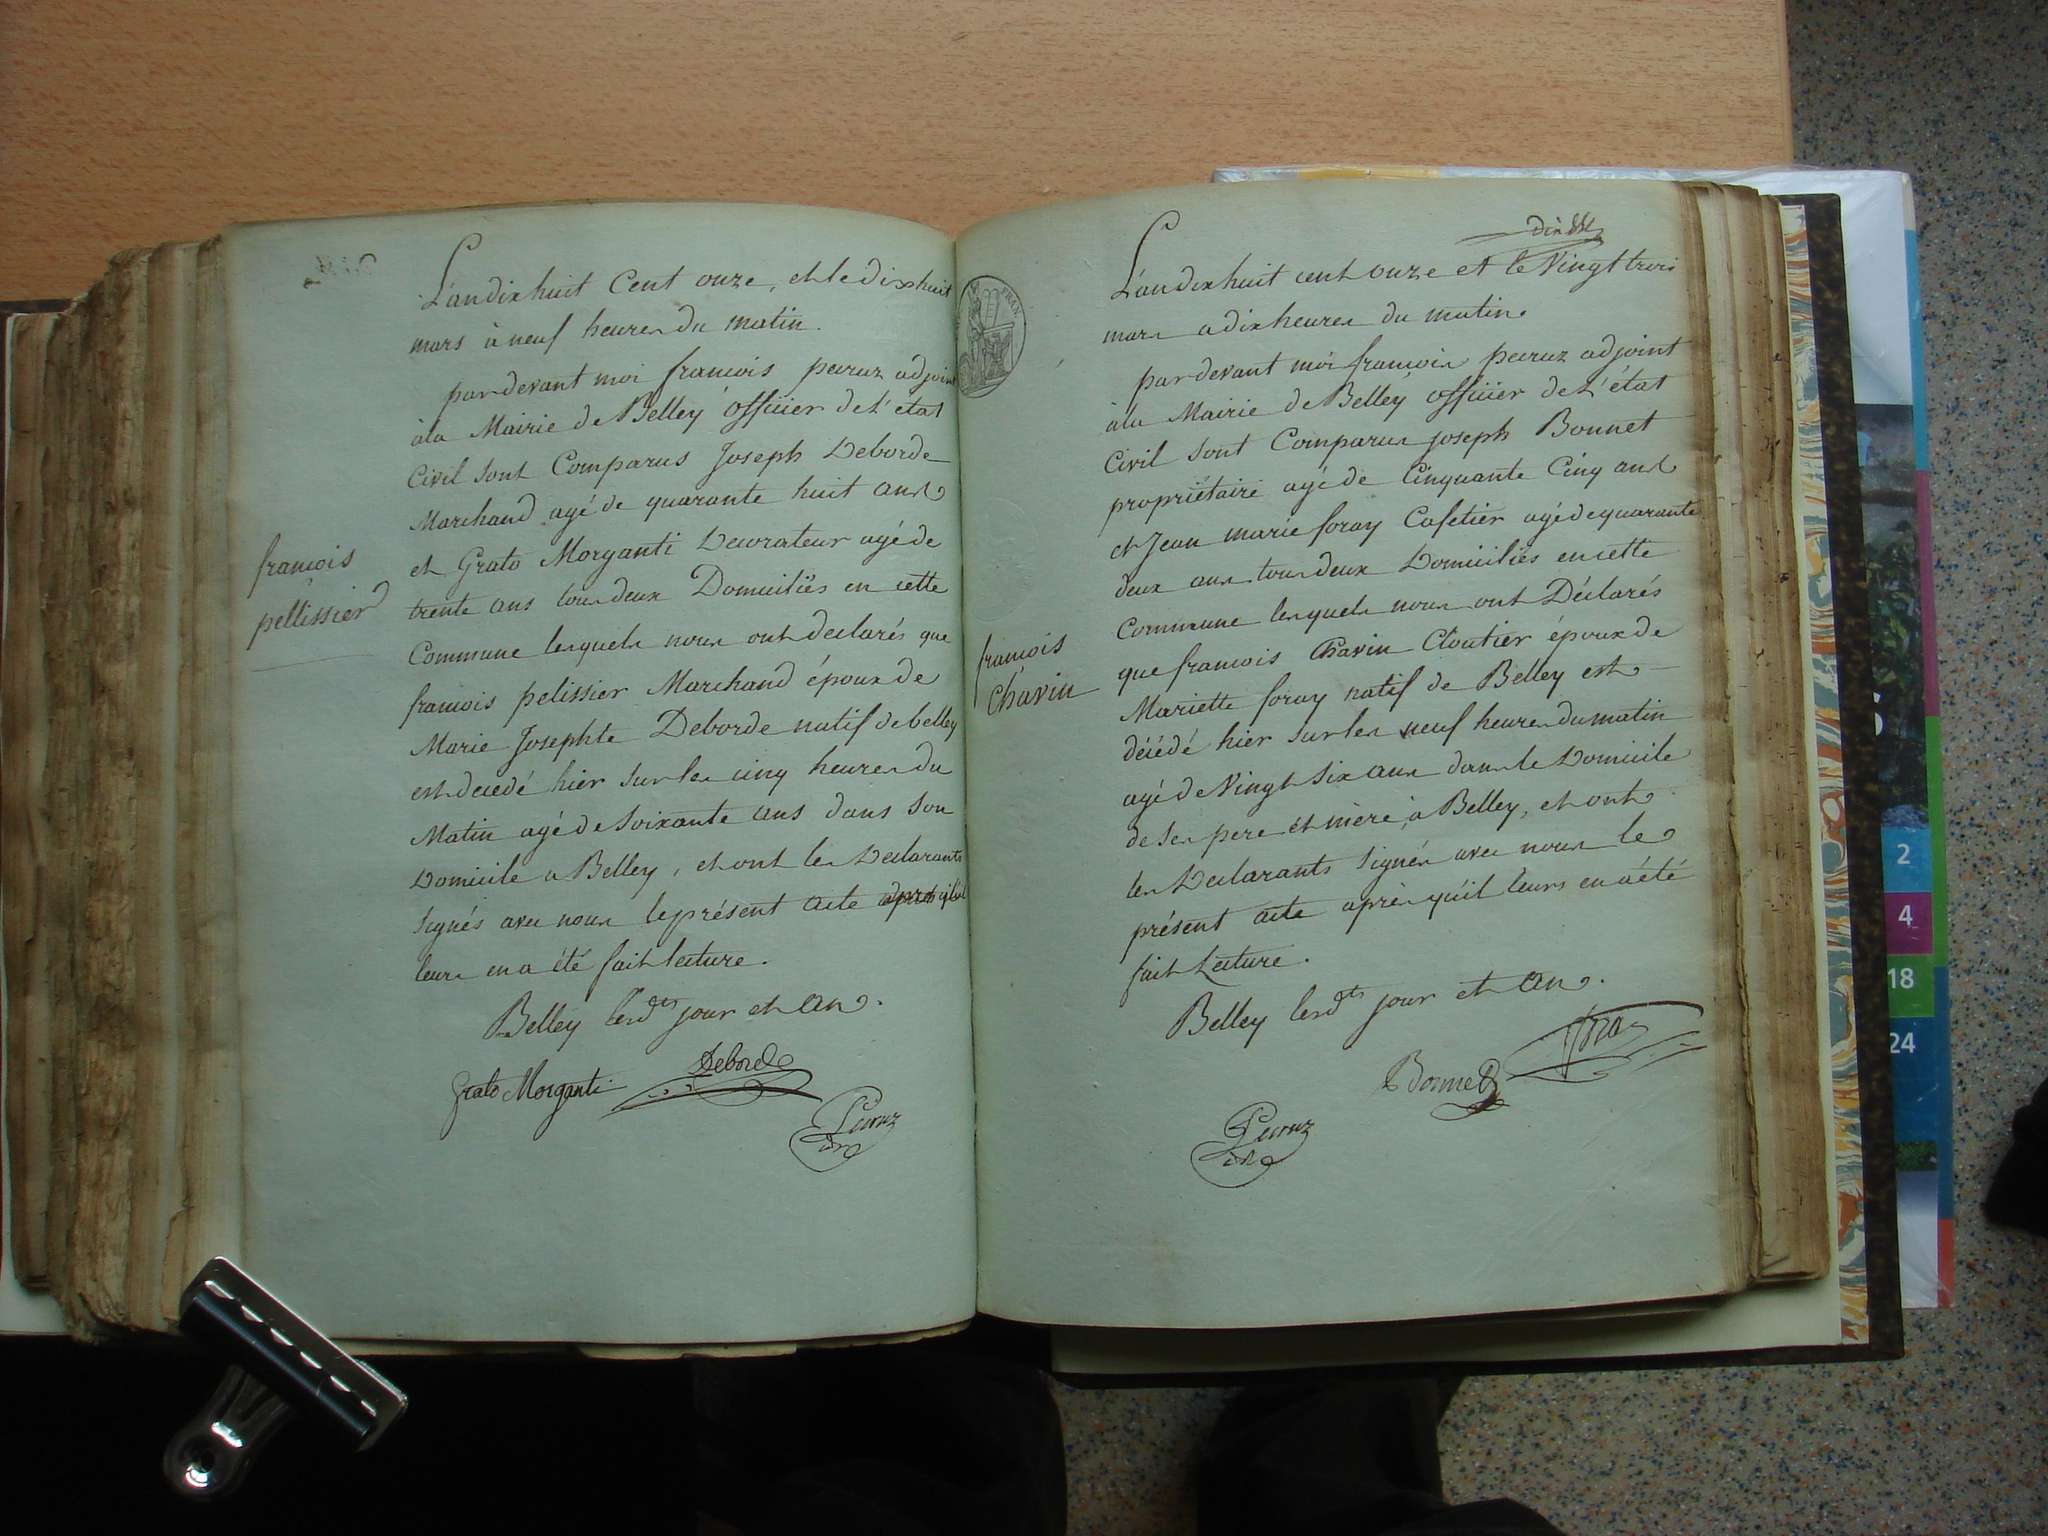 L'an dix huit Cent onze, et le dix huit
mars à neuf heures du matin.
pardevant moi francois peruz adjoint
à la Mairie de Belley officier de L'état
Civil sont Comparus Joseph Deborde
Marchand agé de quarante huit ans
et Grato Morganti Decorateur agé de
trente ans tous deux Domiciliés en cette
Commune lesquels nous ont declarés que
francois pelissier Marchand époux de
Marie Josephte Deborde natif de belley
est decedé hier sur les cinq heures du
Matin agé de soixante ans dans son
Domicile a Belley, et ont les Declarants
signés avec nous le présent acte après qu'il
leurs en a été fait lecture.
Belley lesd. jour et an.
Grato Morganti
Deborde
Peruz
francois
pellissier
FRAN.
dix
L'an dix huit cent onze et le Vingt trois
mars a dix heures du matin.
pardevant moi francois peruz adjoint
à la Mairie de Belley officier de L'état
Civil sont Comparus joseph Bonnet
propriétaire agé de Cinquante Cinq ans
et Jean marie foray Cafetier agé de quarante
deux ans tous deux Domiciliés en cette
Commune lesquels nous ont Déclarés
que francois Chavin Cloutier époux de
Mariette foray natif de Belley est
décédé hier sur les neuf heures du matin
agé de Vingt six ans dans le Domicile
de ses pere et mère, a Belley, et ont
les Declarants signés avec nous le
présent acte après qu'il leurs en a été
fait Lecture.
Belley lesdts jour et an.
Bonnet
Peruz
francois
Chavin
2
4
18
24